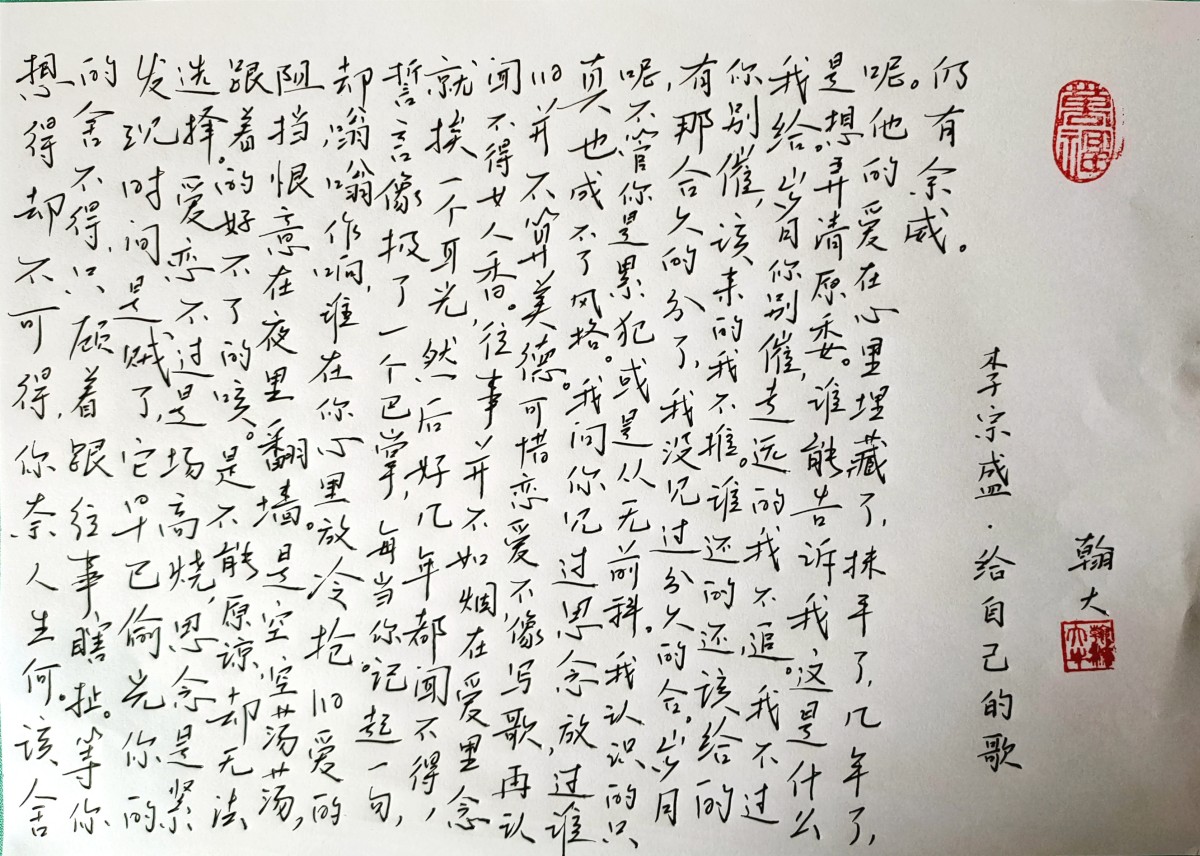 想得却不可得,你奈人生何。该舍
的舍不得,只顾着跟往事瞎扯。等你
发现时间是贼了,它早已偷光你的
选择。爱恋不过是场高烧,思念是紧
跟着的好不了的咳。是不能原谅,却无法
阻挡恨意在夜里翻墙。是空空荡荡,
却嗡嗡作响,谁在你心里放冷抢。旧爱的
誓言像极了一个巴掌,每当你记起一句,
就挨一个耳光,然后好几年都闻不得,
闻不得女人香。往事并不如烟在爱里念
旧并不算美德。可惜恋爱不像写歌,再认
真也成不了风格。我问你见过思念放过谁
呢不管你是累犯或是从无前科。我认识的只
有那合久的分了,我没见过分久的合。岁月
你别催,该来的我不推。该还的还,该给的
我给。岁月你别催,走远的我不追。我不过
是想弄清原委。谁能告诉我这是什么
呢。他的爱在心里埋藏了,抹平了,几年了,
仍有余威。
李宗盛·给自己的歌
萬福
翰大